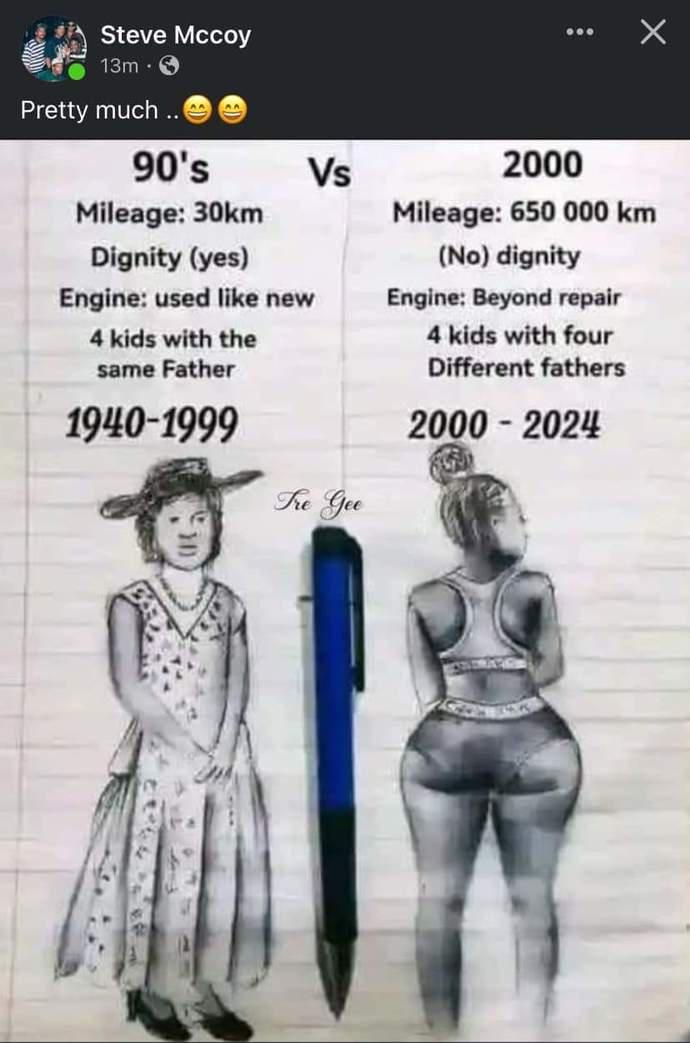 Steve Mccoy
13m
Pretty much ..😄😄
90's Vs 2000
Mileage: 30km
Dignity (yes)
Engine: used like new
4 kids with the
same Father
1940-1999
Mileage: 650 000 km
(No) dignity
Engine: Beyond repair
4 kids with four
Different fathers
2000 - 2024
Tre Gee